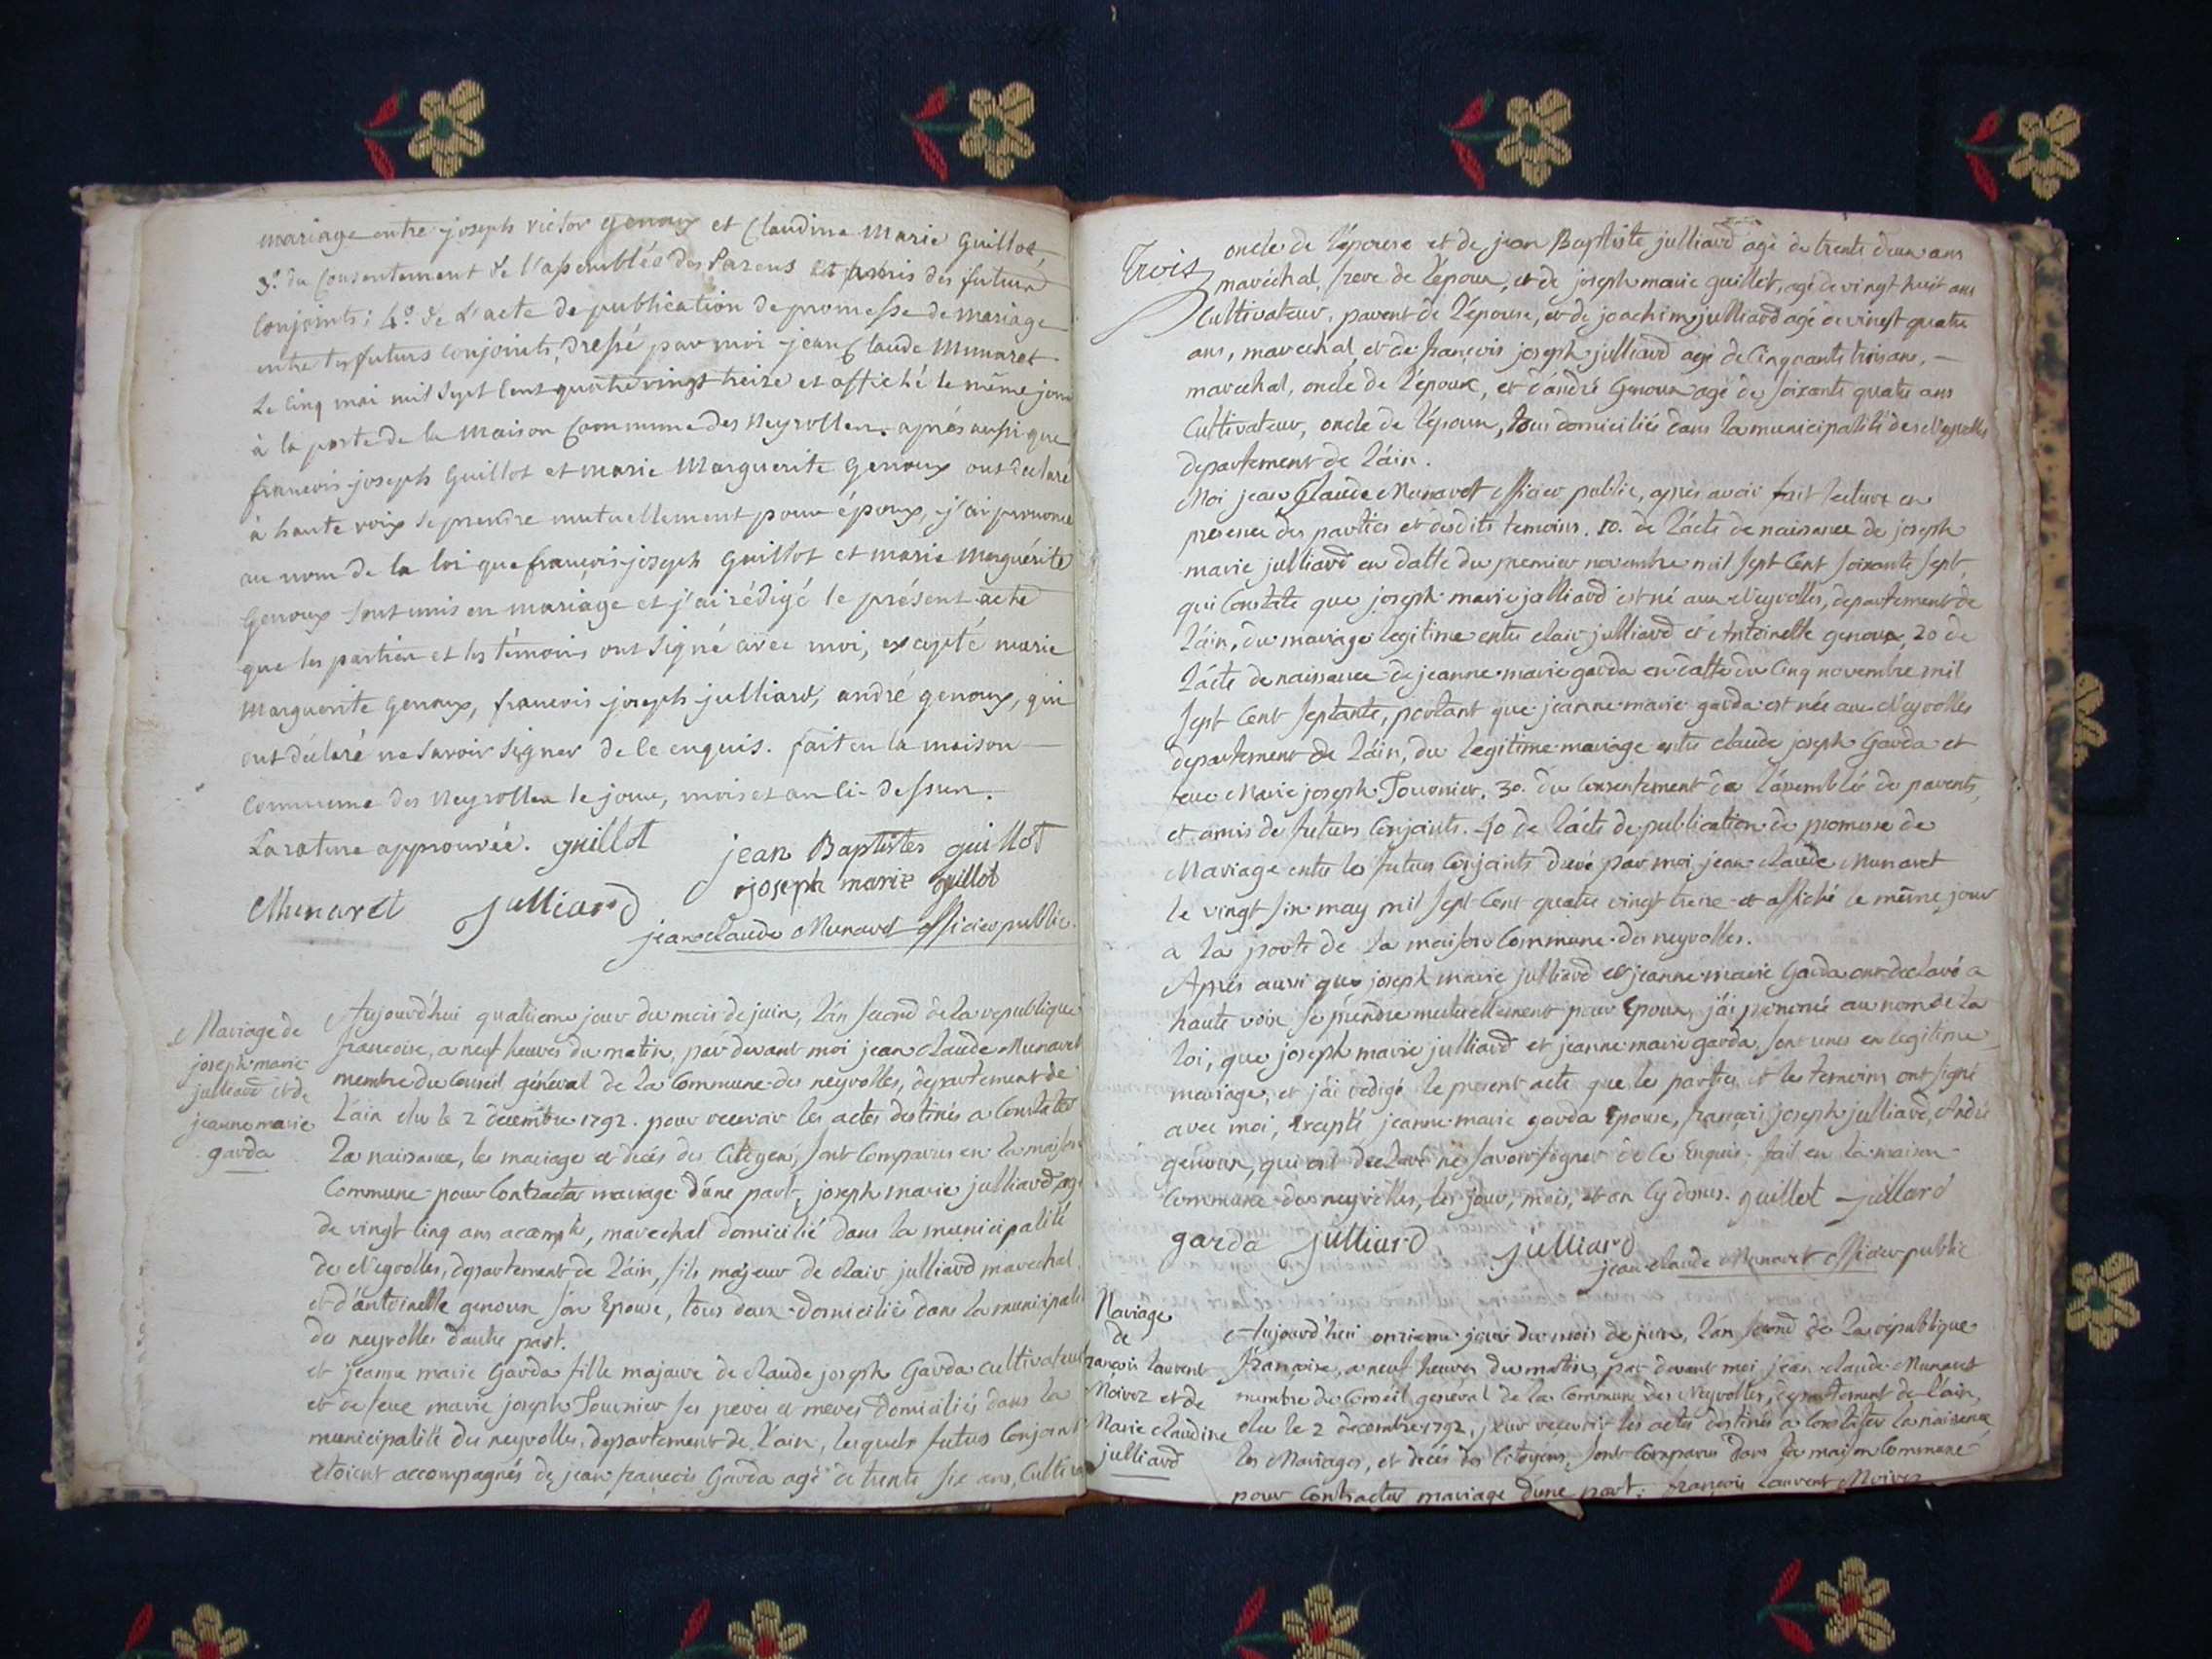 mariage entre joseph victor genoux et Claudine Marie Guillot,
3.° du Consentement de l'assemblée des Parens et amis des futurs
Conjoints; 4.° de L'acte de publication de promesse de mariage
entre les futurs conjoints, dressé par moi jean Claude Munaret
Le cinq mai mil sept cent quatrevingt treize et affiché le même jour
à la porte de la maison Commune des Neyrolles. après aussi que
françois joseph Guillot et marie Marguerite genoux ont déclaré
à haute voix se prendre mutuellement pour époux, j'ai prononcé
au nom de la loi que françois-joseph Guillot et marie Marguérite
Genoux sont unis en mariage et j'ai rédigé le présent acte
que les parties et les témoins ont signé avec moi, excepté marie
Marguerite Genoux, francois joseph julliard, andré genoux, qui
ont déclaré ne savoir signer de ce enquis. fait en la maison
Commune des Neyrolles le jour, mois et an ci-dessus.
La rature approuvée. guillot
jean Baptistes guillot
joseph marie guillot
Munaret julliard
jean claude Munaret officier public
Mariage de
joseph marie
julliard et de
jeanne marie
garda
Aujourd'hui quatrieme jour du mois de juin, l'an second de la republique
francoise, a neuf heures du matin, par devant moi jean claude Munaret
membre du Conseil général de la Commune des neyrolles, departement de
l'ain elu le 2 decembre 1792. pour recevoir les actes destinés a Constater
La naissance, les mariages et décés des Citoyens, sont Comparus en la maison
Commune pour Contracter mariage d'une part, joseph marie julliard agé
de vingt cinq ans acomplis, marechal domicilié dans la municipalité
des Neyrolles, departement de l'ain, fils majeur de clair julliard marechal
et d'antoinette genoux son Epouse, tous deux domiciliés dans la municipalité
des neyrolles d'autre part.
et jeanne marie Garda fille majeure de claude joseph Garda cultivateur
et de feue marie joseph Tournier ses peres et meres domiciliés dans la
municipalité des neyrolles, departement de l'ain, lesquels futurs Conjoints
etoient accompagnés de jean francois Garda agé de trente six ans, Cultivateur
Trois
oncle de l'épouse et de jean Baptiste julliard agé de trente deux ans
maréchal, frere de l'époux, et de joseph marie guillot, agé de vingt huit ans
Cultivateur, parent de l'épouse, et de joachim julliard agé de vingt quatre
ans, marechal, et de françois joseph julliard agé de Cinquante trois ans,
marechal, oncle de l'époux, et d'andré Genoux agé de soixante quatre ans
Cultivateur, oncle de l'époux, tous domiciliés dans la municipalité des Neyrolles
departement de l'ain.
Moi jean Claude Munaret officier public, après avoir fait lecture en
presence des parties et desdits temoins. 1o. de l'acte de naissance de joseph
marie julliard en datte du premier novembre mil sept Cent soixante sept,
qui Constate que joseph marie julliard est né aux Neyrolles, departement de
l'ain, du mariage legitime entre clair julliard et Antoinette genoux, 2o de
l'acte de naissance de jeanne marie garda en datte du Cinq novembre mil
sept Cent septante, portant que jeanne marie garda est née aux Neyrolles
departement de l'ain, du legitime mariage entre claude joseph Garda et
feue Marie joseph Tournier. 3o. du Consentement de l'assemblée de parents,
et amis de futurs Conjoints. 4o de l'acte de publication de promesse de
Mariage entre les futurs Conjoints dressé par moi jean claude Munaret
le vingt six may mil sept Cent quatre vingt treize et affiché le même jour
a la porte de la maison Commune des neyrolles.
Après aussi que joseph marie julliard et jeanne marie Garda ont declaré a
haute voix se prendre mutuellement pour Epoux, j'ai prononcé au nom de la
loi, que joseph marie julliard et jeanne marie garda, sont unis en legitime
mariage, et j'ai redigé le present acte que les parties, et les temoins ont signé
avec moi, Excepté jeanne marie garda Epouse, francois joseph julliard, André
genoux, qui ont declaré ne savoir signer de ce Enquis. fait en la maison
Commune des neyrolles, les jour, mois, et an cy dessus. guillot julliard
garda julliard julliard
jean claude Munaret officier public
Mariage
de
francois laurent
Noiroz et de
Marie claudine
julliard
Aujourd'hui onzieme jour du mois de juin, l'an second de la république
françoise, a neuf heures du matin, par devant moi jean claude Munaret
membre du Conseil general de la Commune des Neyrolles, departement de l'ain,
elu le 2 decembre 1792, pour recevoir les actes destinés a Constater la naissance,
les Mariages, et decés des Citoyens, sont Comparus dans la maison Commune
pour Contracter mariage d'une part, francois laurent Noiroz